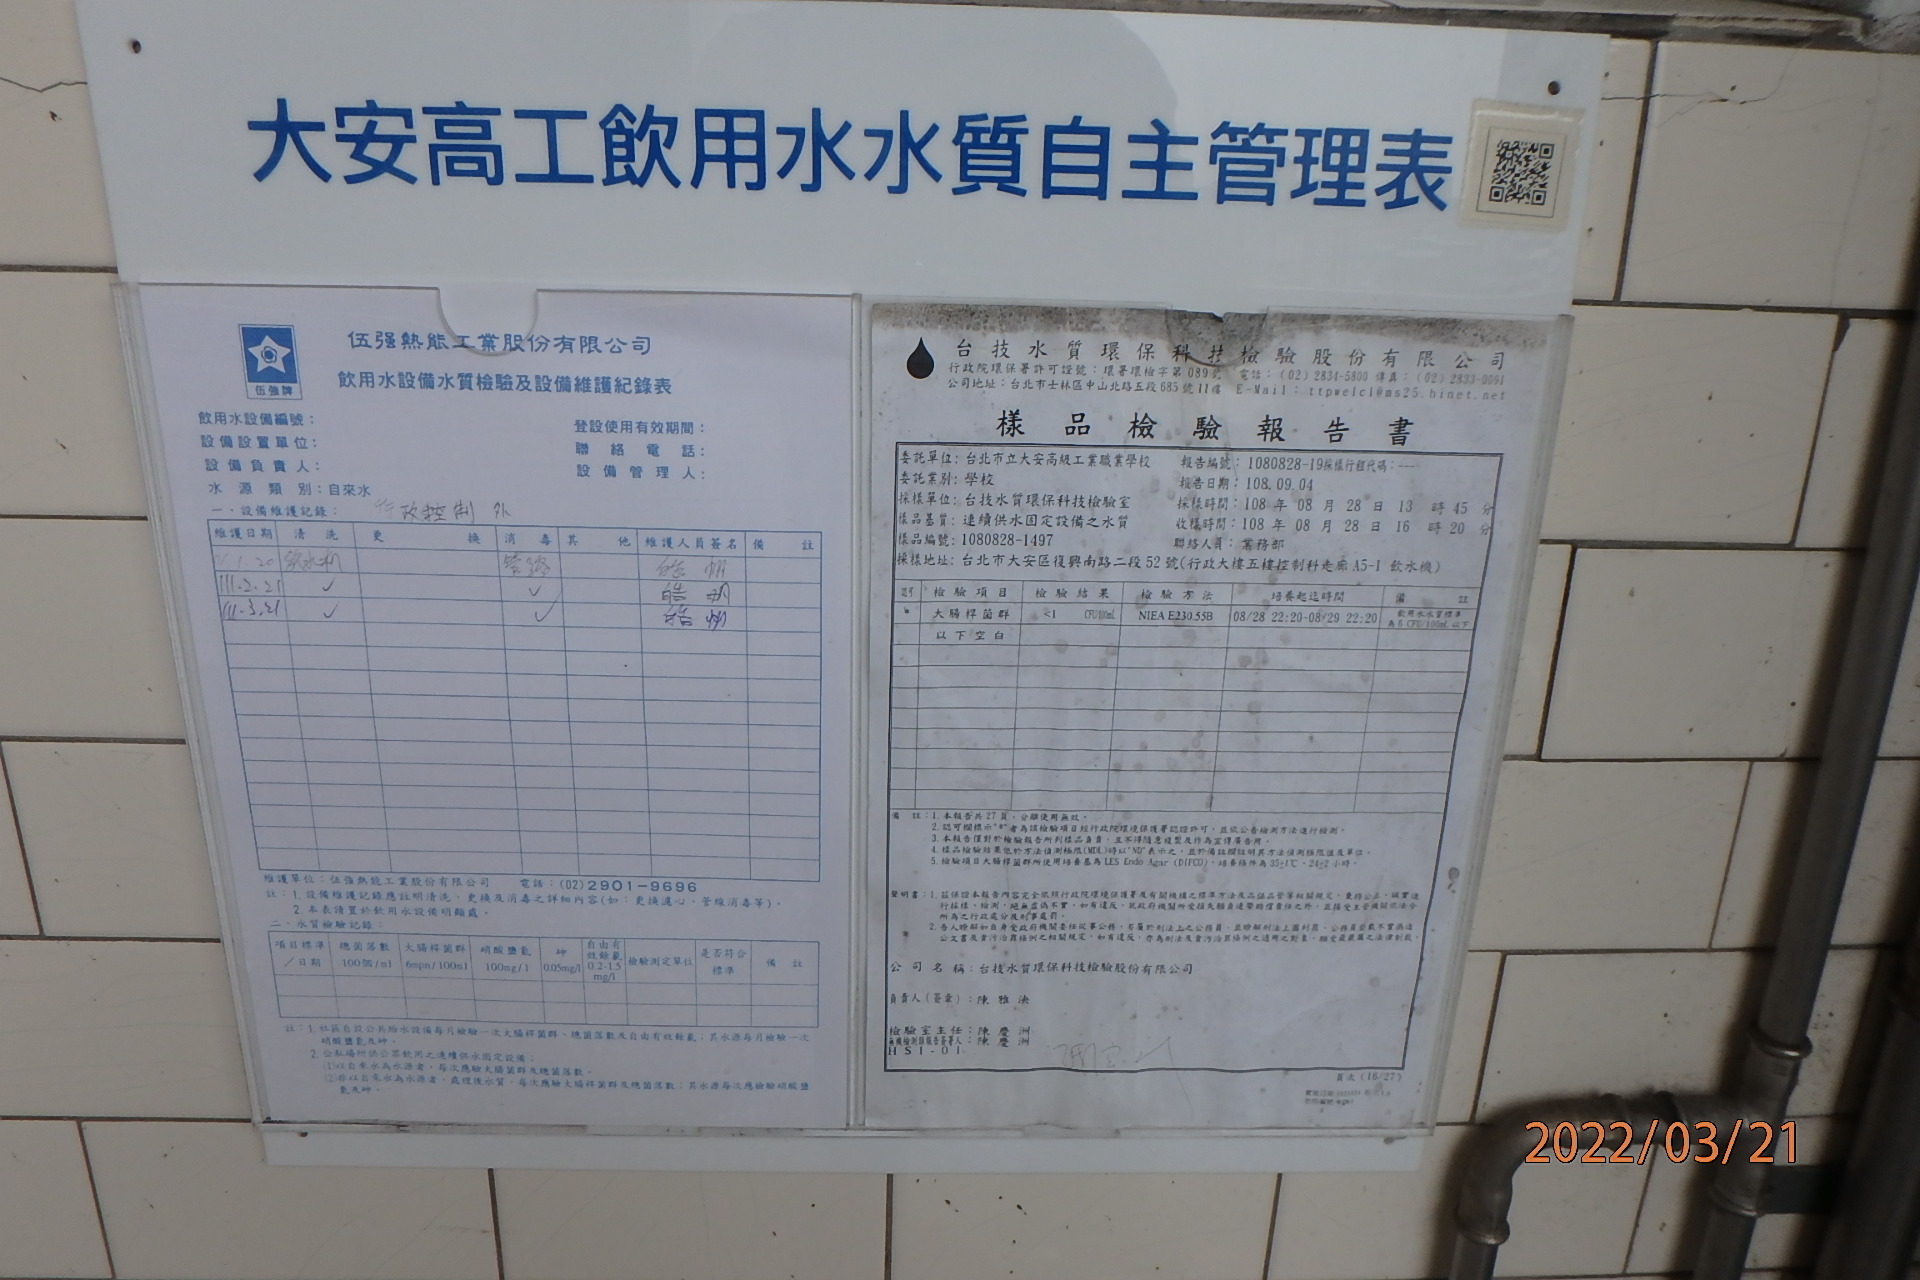 大安高工飲用水水質自主管理表
伍強牌
伍强熱能工業股份有限公司
飲用水設備水質檢驗及設備維護紀錄表
飲用水設備編號：
設備設置單位：
設備負責人：
水源類別：自來水
登設使用有效期間：
聯絡電話：
設備管理人：
一、設備維護記錄： 行政控制外
維護日期 清洗 更換 消毒 其他 維護人員簽名 備註
1.20 飲水机 管路
111.2.21 ✓ ✓
111.3.21 ✓ ✓
維護單位：伍强熱能工業股份有限公司 電話：(02)2901-9696
註：1.設備維護記錄應註明清洗，更換及消毒之詳細內容(如：更換濾心、管線消毒等)。
2.本表請置於飲用水設備明顯處。
二、水質檢驗記錄：
項目標準／日期 總菌落數100個/ml 大腸桿菌群6mpn/100ml 硝酸鹽氮100mg/l 砷0.05mg/l 自由有效餘氯0.2-1.5mg/l 檢驗測定單位 是否符合標準 備註
註：1.社區自設公共給水設備每月檢驗一次大腸桿菌群、總菌落數及自由有效餘氯；其水源每月檢驗一次
硝酸鹽氮及砷。
2.公私場所供公眾飲用之連續供水固定設備：
(1)以自來水為水源者，每次應驗大腸菌群及總菌落數。
(2)非以自來水為水源者，處理後水質，每次應驗大腸桿菌群及總菌落數；其水源每次應檢驗硝酸鹽
氮及砷。
台技水質環保科技檢驗股份有限公司
行政院環保署許可證號：環署環檢字第089號 電話：(02)2834-5800 傳真：(02)2833-0091
公司地址：台北市士林區中山北路五段685號11樓 E-Mail：ttpwelcl@ms25.hinet.net
樣品檢驗報告書
委託單位：台北市立大安高級工業職業學校 報告編號：1080828-19採樣行程代碼：---
委託業別：學校 報告日期：108.09.04
採樣單位：台技水質環保科技檢驗室 採樣時間：108年08月28日13時45分
樣品基質：連續供水固定設備之水質 收樣時間：108年08月28日16時20分
樣品編號：1080828-1497 聯絡人員：業務部
採樣地址：台北市大安區復興南路二段52號(行政大樓五樓控制科走廊A5-1飲水機)
認可 檢驗項目 檢驗結果 檢驗方法 培養起迄時間 備註
大腸桿菌群 <1 CFU/100mL NIEA E230.55B 08/28 22:20~08/29 22:20 飲用水水質標準為6 CFU/100mL以下
以下空白
備註：1.本報告共27頁，分離使用無效。
2.認可欄標示"*"者為該檢驗項目經行政院環境保護署認證許可，並依公告檢測方法進行檢測。
3.本報告僅對於檢驗報告所列樣品負責，且不得隨意複製及作為宣傳廣告用。
4.樣品檢驗結果低於方法偵測極限(MDL)時以"ND"表示之，並於備註欄註明其方法偵測極限值及單位。
5.檢驗項目大腸桿菌群所使用培養基為LES Endo Agar (DIFCO)，培養條件為35±1℃，24±2小時。
公司名稱：台技水質環保科技檢驗股份有限公司
負責人(簽章)：陳雅泱
檢驗室主任：陳慶洲
無機檢測類報告簽署人：陳慶洲
HSI-01
頁次(16/27)
2022/03/21